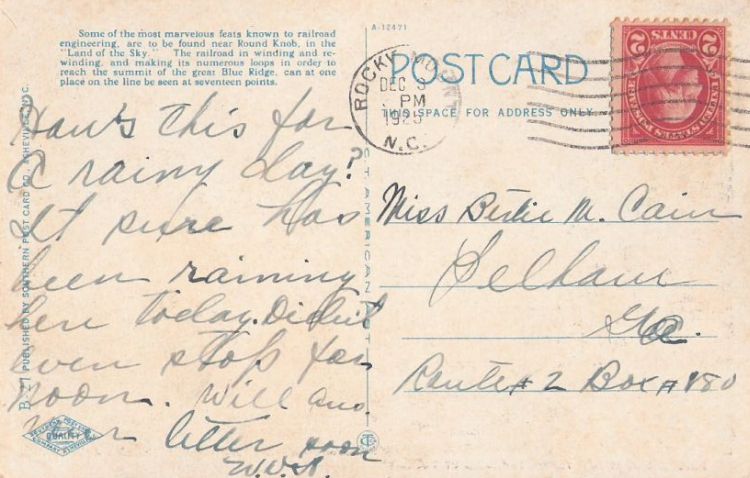 Some of the most marvelous feats known to railroad
engineering, are to be found near Round Knob, in the
"Land of the Sky." The railroad in winding and re-
winding, and making its numerous loops in order to
reach the summit of the great Blue Ridge, can at one
place on the line be seen at seventeen points.
A-12471
POST CARD
THIS SPACE FOR ADDRESS ONLY
ROCKY MOUNT
DEC 3
PM
1925
N.C.
CENTS
2 2
PUBLISHED BY SOUTHERN POST CARD CO., ASHEVILLE, N. C.
QUALITY
How's this for
a rainy day?
It sure has
been raining
here today. Didn't
even stop for
noon. Will ans.
your letter soon
Miss Birdie M. Cain
Pelham
Ga.
Route #2 Box #180